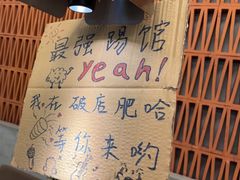 最强踢馆
yeah!
我在破店肥哈
等你来哟